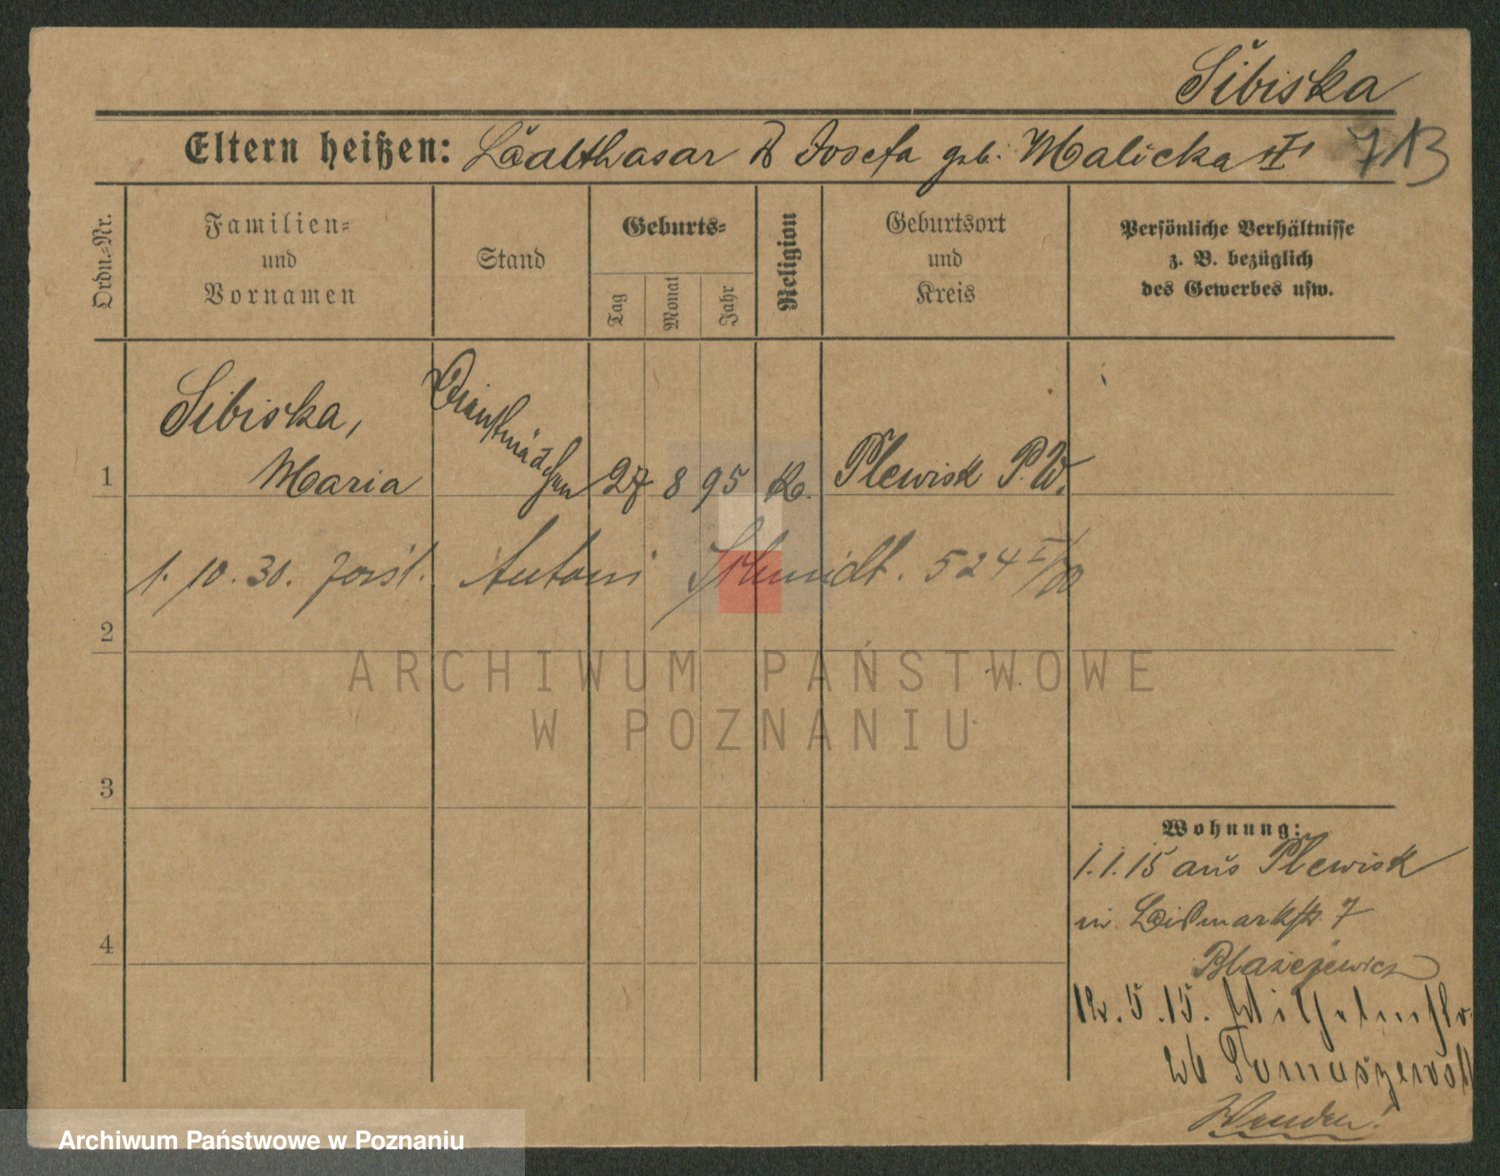 Sibiska
Eltern heißen: Balthasar & Josefa geb. Malicka II 713
Ordn.-Nr.
Familien- und Vornamen
Stand
Geburts-
Tag
Monat
Jahr
Religion
Geburtsort und Kreis
Persönliche Verhältnisse
z. B. bezüglich
des Gewerbes usw.
Sibiska,
1 Maria Dienstmädchen 27 8 95 K. Plewisk P.W.
1. 10. 30. Antoni Schmidt. 524
2
3
4
Wohnung:
1.1.15 aus Plewisk
in Bismarckstr. 7
Blazejewicz
12.5.15. Wilhelmstr.
26 Tomaszewski
Wenden!
ARCHIWUM PAŃSTWOWE
W POZNANIU
Archiwum Państwowe w Poznaniu